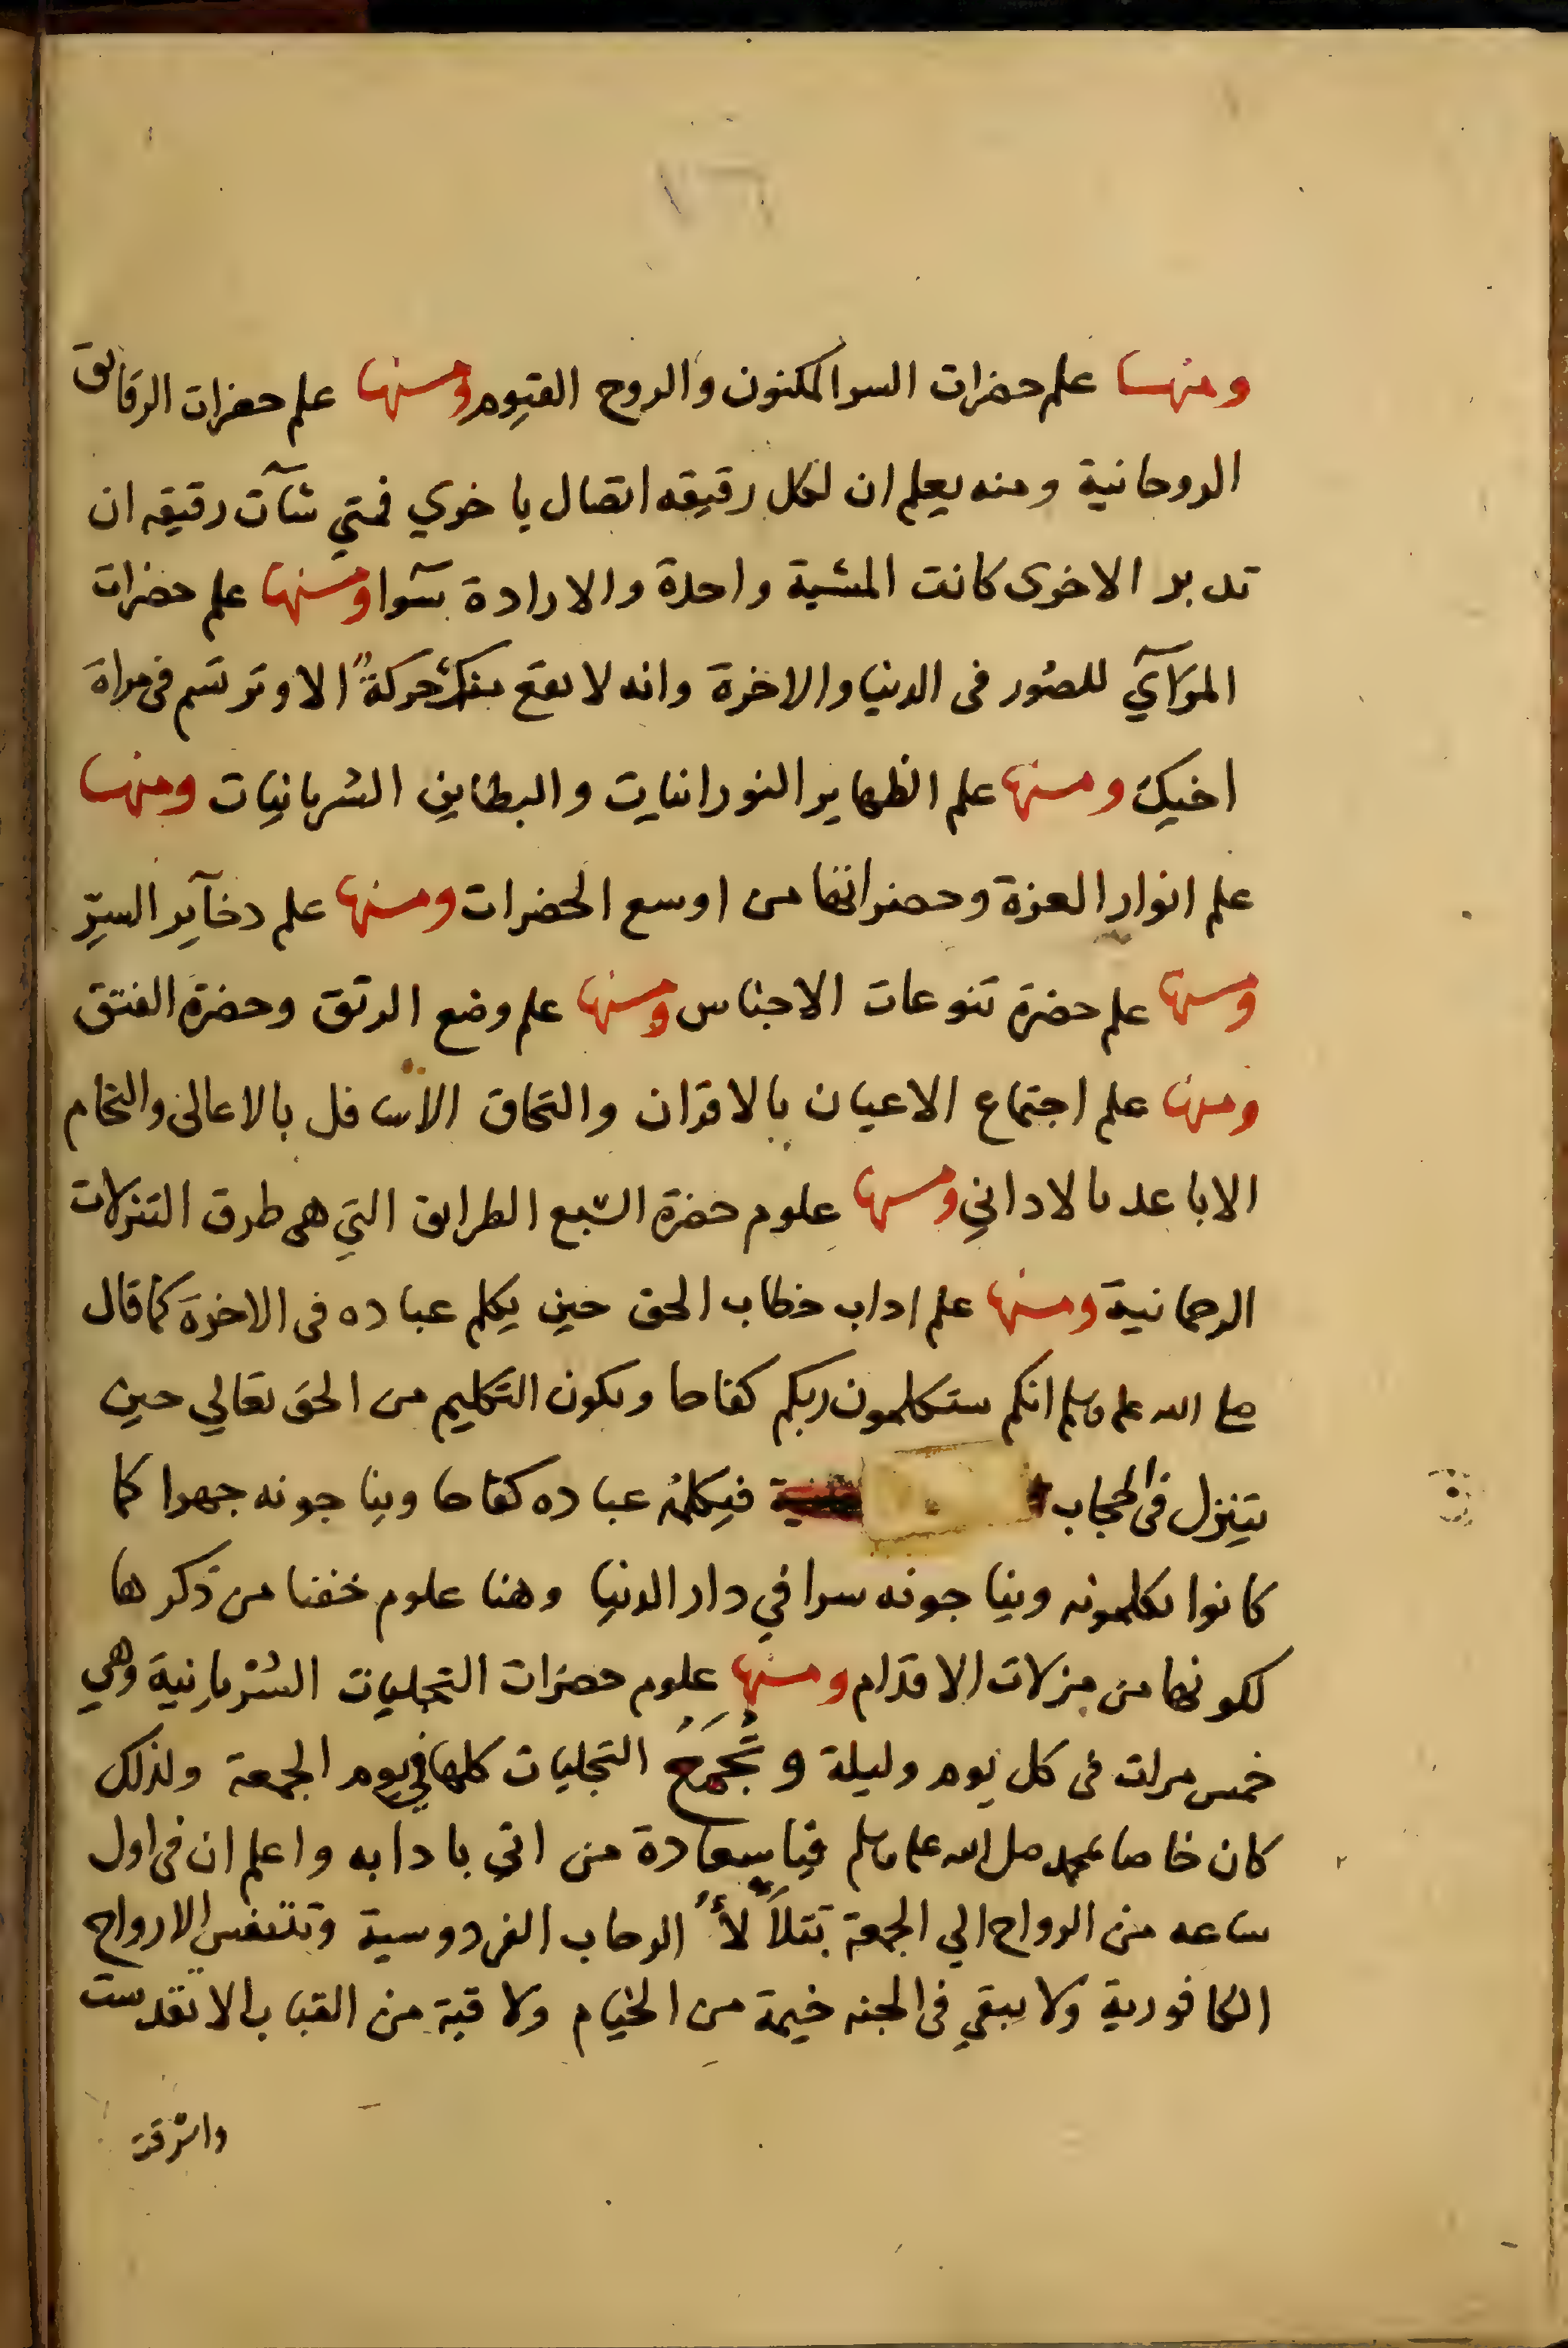 ومنها علم حضرات السر المكنون والروح القيوم ومنها علم حضرات الرقائق
الروحانية ومنه يعلم ان لكل رقيقه اتصال باخري فمتي شآت رقيقه ان
تدبر الاخرى كانت المشية واحدة والارادة سوآ ومنها علم حضرات
المرآآي للصور فى الدنيا والاخرة وانه لا يقع منك حركة الا وترتسم فى مراة
اخيك ومنها علم الظهاير النورانيات والبطاين السريانيات ومنها
علم انوار العزة وحضراتها من اوسع الحضرات ومنها علم دخآير السرّ
ومنها علم حضرة تنوعات الاجناس ومنها علم وضع الرتق وحضرة الفتق
ومنها علم اجتماع الاعيان بالاقران والتحاق الاسافل بالاعالى والتحام
الاباعد بالاداني ومنها علوم حضرة السبع الطرايق التي هى طرق التنزلات
الرحمانية ومنها علم اداب خطاب الحق حين يكلم عباده فى الاخرة كما قال
صلى الله عليه وسلم انكم ستكلمون ربكم كفاحا ويكون التكليم من الحق تعالي حين
يتنزل فى الحجاب فيكلمه عباده كفاحا ويناجونه جهرا كما
كانوا يكلمونه ويناجونه سرا في دار الدنيا وهنا علوم خفنا من ذكرها
لكونها من مزلات الاقدام ومنها علوم حضرات التجليات السريانية وهي
خمس مرات فى كل يوم وليلة وتجمع التجليات كلها في يوم الجمعة ولذلك
كان خاصا بمحمد صلى الله عليه وسلم فيا سعادة من اتي بادابه واعلم ان فى اول
ساعه من الرواح الي الجمعة تتلألأ الرحاب الفردوسية وتتنفس الارواح
الكافورية ولا يبقي فى الجنه خيمة من الخيام ولا قبة من القباب الا تقدست
واشرقت